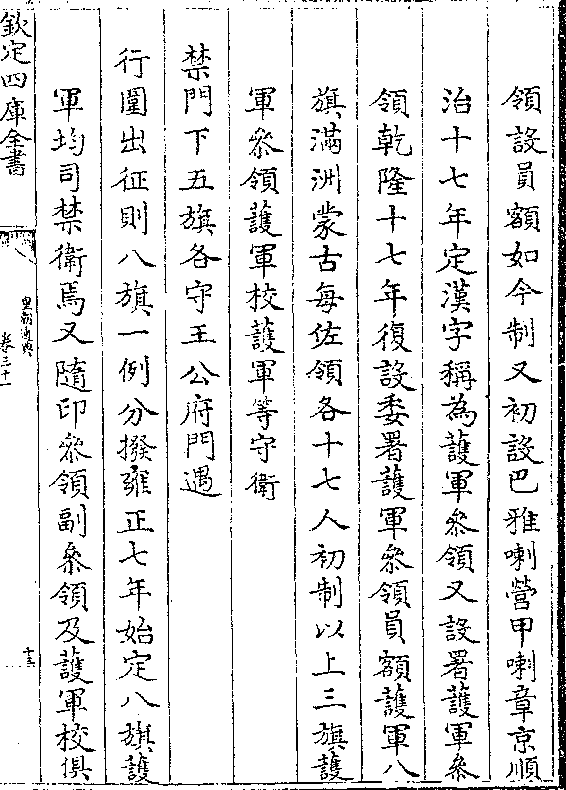 領設員額如今制又初設巴雅喇營甲喇章京順
治十七年定漢字稱為護軍叅領又設署護軍叅
領乾隆十七年復設委署護軍叅領員額護軍八
旗滿洲蒙古每佐領各十七人初制以上三旗護
軍叅領護軍校護軍等守衛
禁門下五旗各守王公府門遇
行圍出征則八旗一例分撥雍正七年始定八旗護
軍均司禁衛焉又隨印叅領副叅領及護軍校俱
欽定四庫全書
皇朝通典
卷三十一
十三